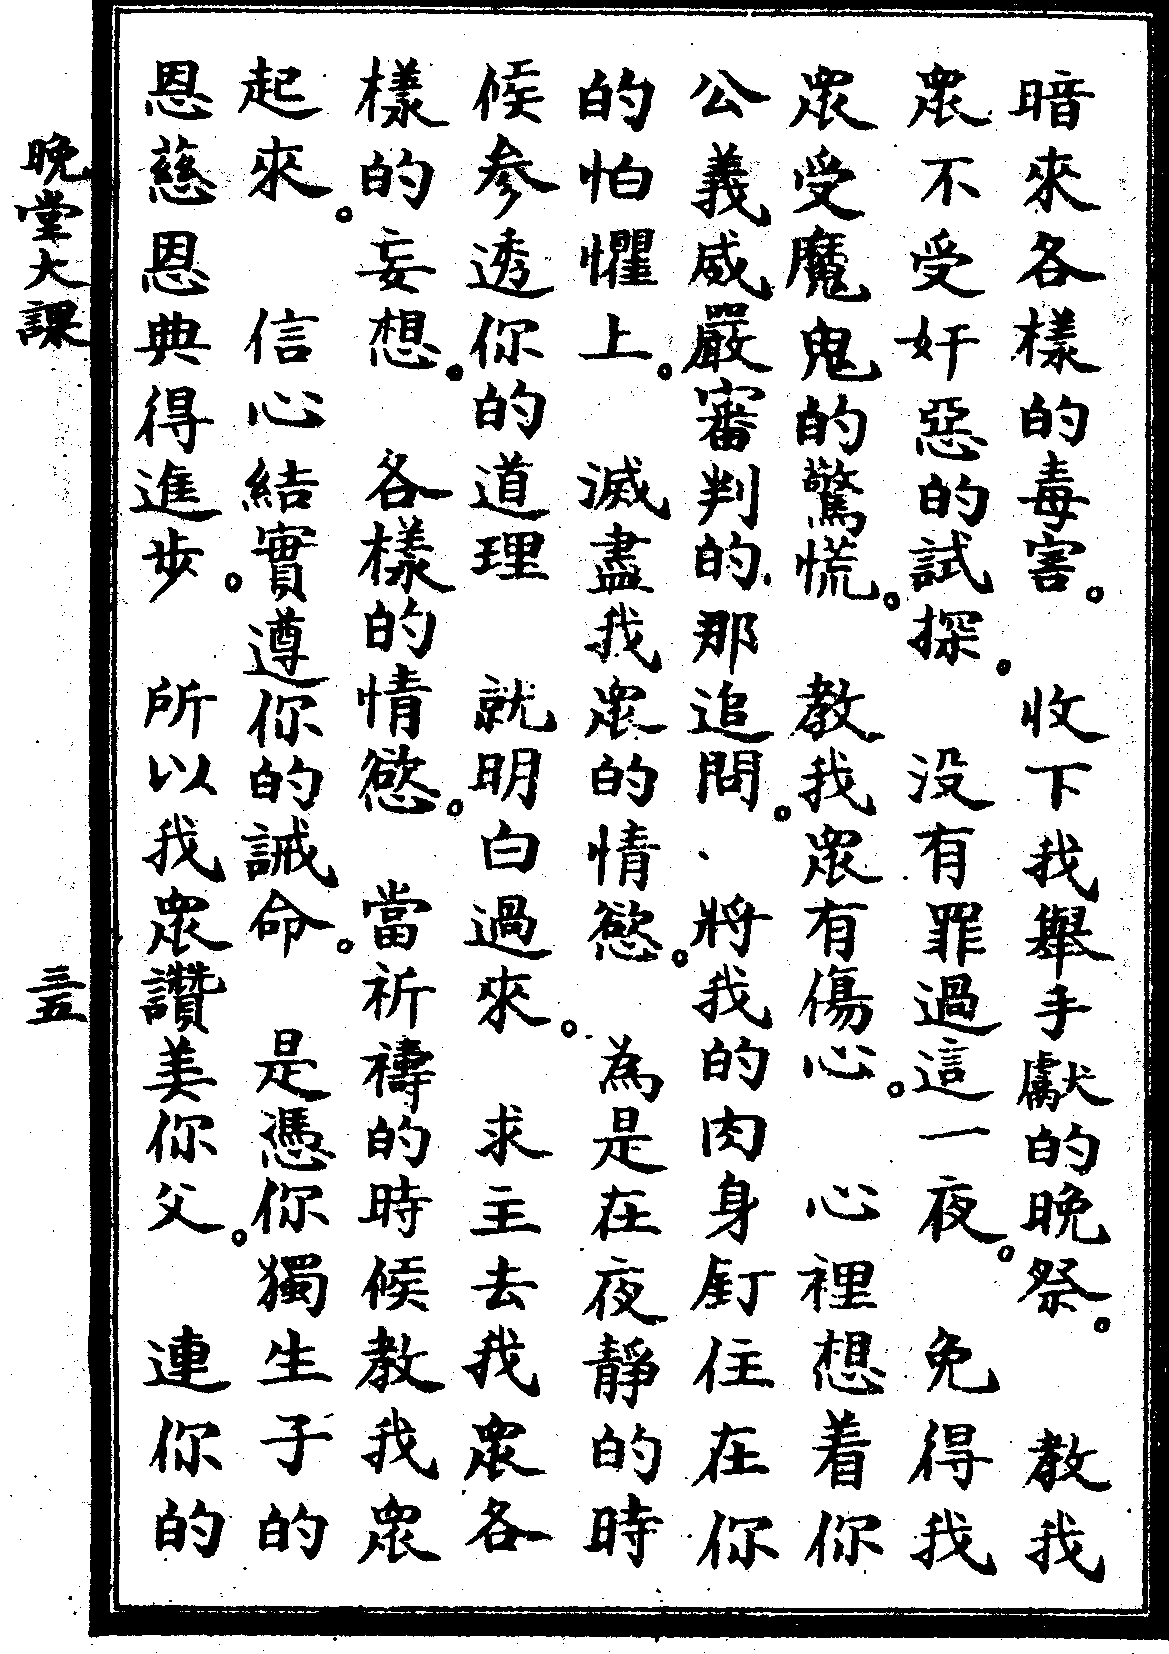 暗來各樣的毒害。 收下我舉手獻的晚祭。 教我
衆不受奸惡的試探。 没有罪過這一夜。 免得我
衆受魔鬼的驚慌。 教我衆有傷心。 心裡想着你
公義威嚴審判的、那追問。、將我的肉身釘住在你
的怕懼上。 滅盡我衆的情慾。 為是在夜靜的時
候参透你的道理 就明白過來。 求主去我衆各
樣的妄想。 各樣的情慾。 當祈禱的時候教我衆
起來。 信心結實遵你的誡命。 是憑你獨生子的
恩慈恩典得進步。 所以我衆讚美你父。 連你的
晚堂大課
三五